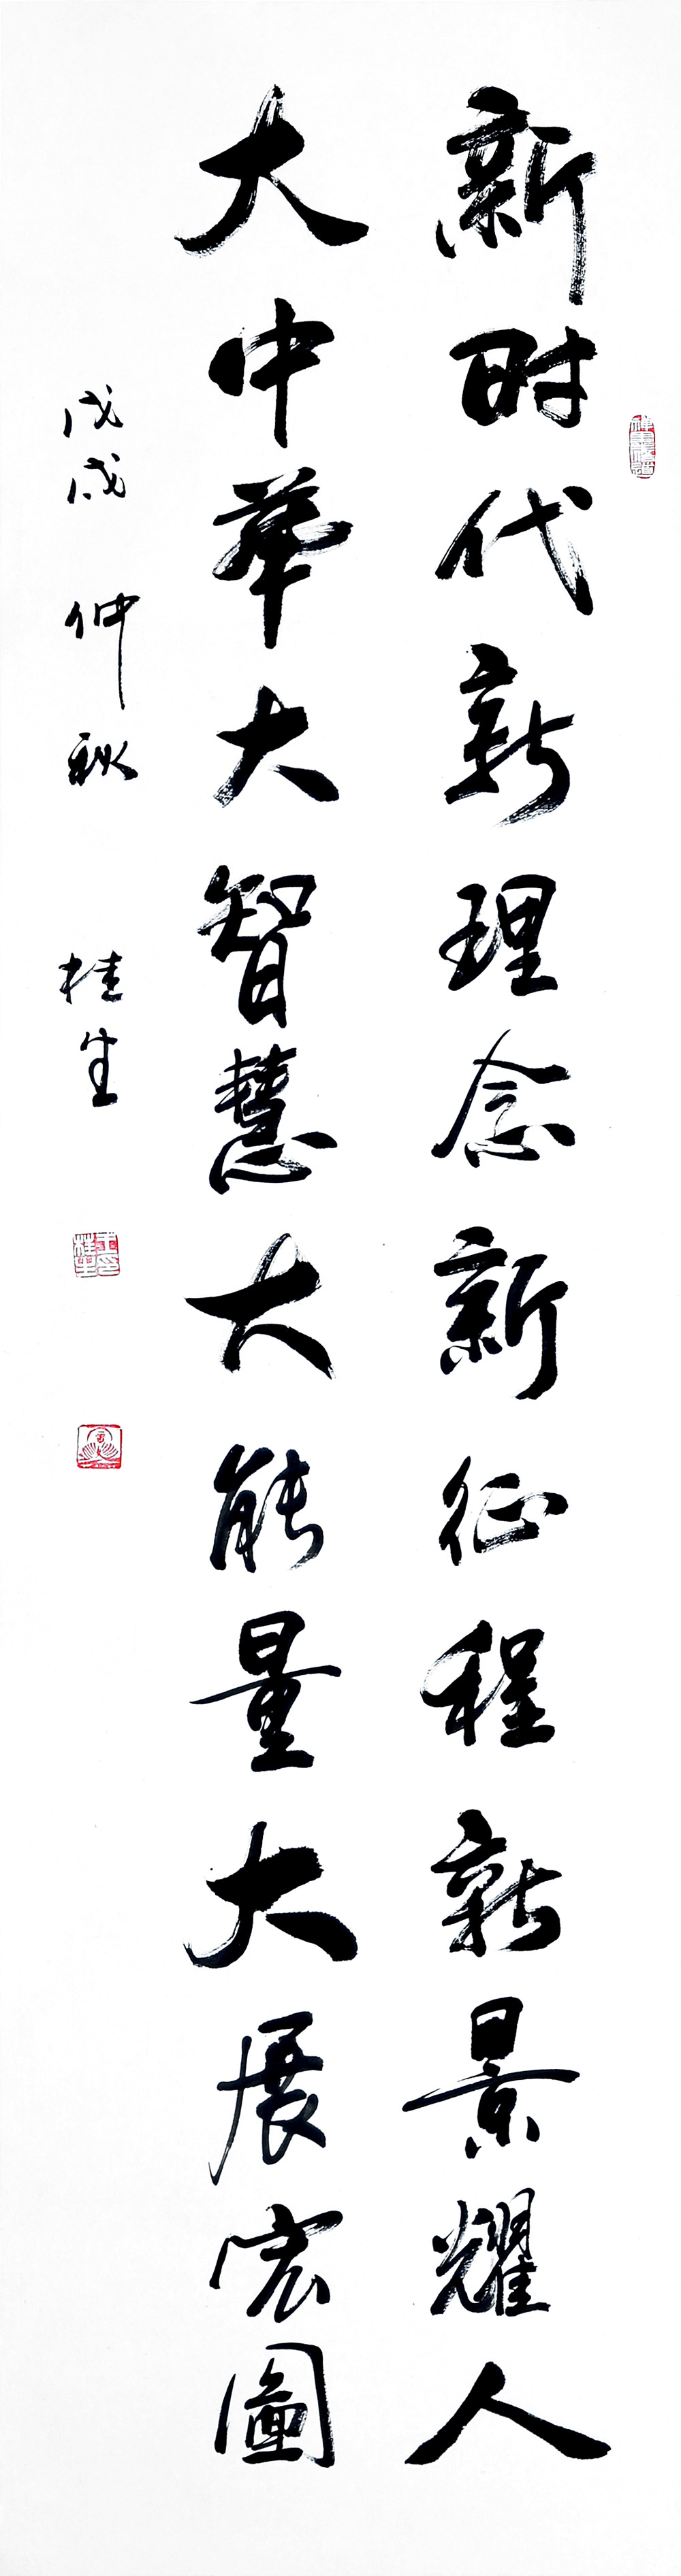 新时代新理念新征程新景耀人
大中華大智慧大能量大展宏圖
戊戌 仲秋 桂生